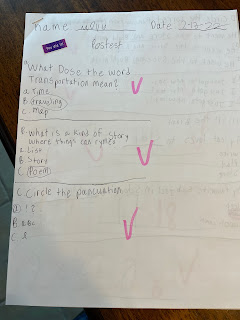 Name: 
Date 
You did it!
Postest
What Dose the word
Transportation mean?
a. Time
B. traveling
C. Map
B. what is a kind of story
where things can ryme?
a. List
B. Store
C. Poem
C Circle the pancuation
a ! ?
B ABC
C &